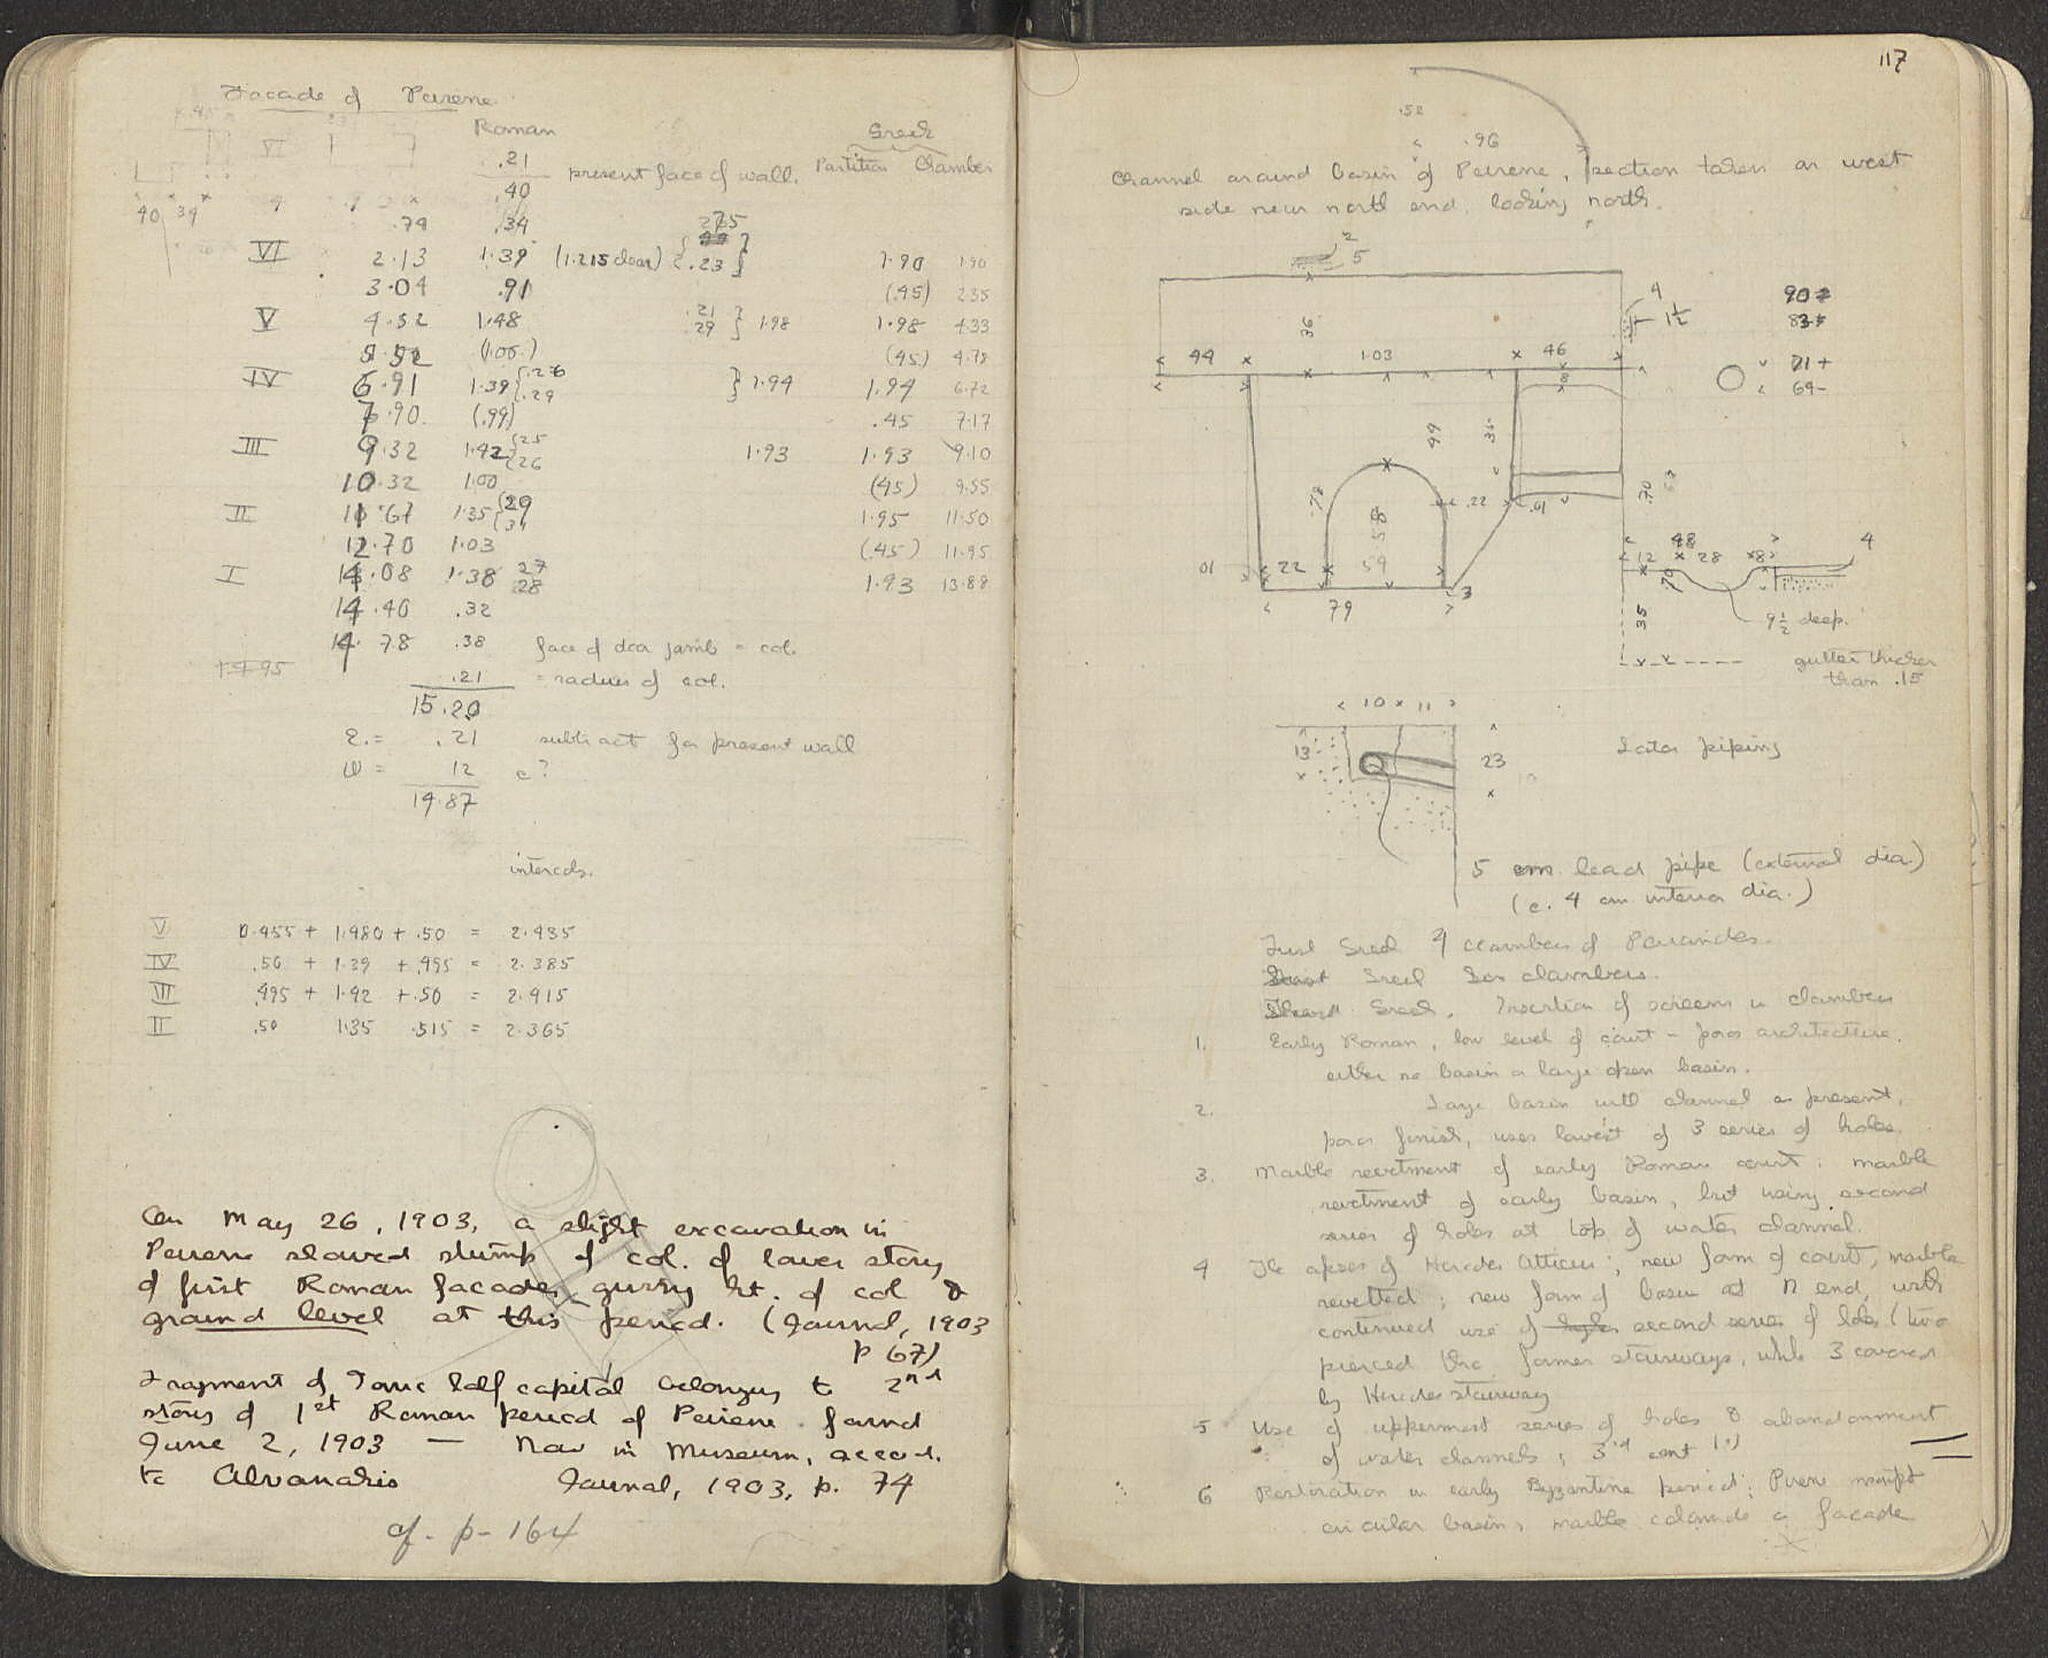 Facade of Peirene
Roman
Greek
.21 present face of wall. Partition Chamber
.40
40 39
.74 .34 .275
VI 2.13 1.39 (1.215 clear) .23 1.90 1.90
3.04 .91 (.45) 2.35
V 4.52 1.48 .21 29 } 1.98 1.98 4.33
5.52 (1.00) (45) 4.78
IV 6.91 1.39 { .26 .29 } 1.94 1.94 6.72
7.90 (.99) .45 7.17
III 9.32 1.42 { 25 26 1.93 1.93 9.10
10.32 1.00 (45) 9.55
II 11.67 1.35 { 29 31 1.95 11.50
12.70 1.03 (.45) 11.95
I 14.08 1.38 27 28 1.93 13.88
14.40 .32
14.78 .38 face of door jamb = col.
.21 = radius of col.
15.20
.21 subtract for present wall
12 c?
14.87
intercols.
V 0.455 + 1.480 + .50 = 2.435
IV .50 + 1.39 + .495 = 2.385
III .495 + 1.42 + .50 = 2.415
II .50 1.35 .515 = 2.365
On May 26, 1903, a slight excavation in
Peirene showed stump of col. of lower story
of first Roman facade, giving ht. of col &
ground level at this period. (Journal, 1903
p 67)
Fragment of Ionic half capital belonging to 2nd
story of 1st Roman period of Peirene found
June 2, 1903 — Now in Museum, accord.
to Alvanakis Journal, 1903, p. 74
cf. p- 164
117
.52
.96
Channel around basin of Peirene, section taken on west
side near north end, looking north.
2
5
4
1½
36
44 1.03 46
8
71+
69-
49 36
.78 .22 .01 .70
58
10 22 59 3
79
48
12 28 8 4
35
9½ deep.
gutter thicker
than .15
10 11
13 23
Later piping
5 cm lead pipe (external dia.)
(c. 4 cm interior dia.)
First Greek 4 chambers of Peirene
Greek Six chambers.
Greek. Insertion of screens in chambers
1. Early Roman, low level of court - poros architecture.
either no basin or large open basin.
2. Large basin with channel as present,
poros finish, uses lowest of 3 series of holes.
3. Marble revetment of early Roman court. marble
revetment of early basin, but using second
series of holes at top of water channel.
4 The apses of Herodes Atticus; new form of court, marble
revetted; new form of basin at N end, with
continued use of second series of holes (two
pierced thro former stairways, while 3 covered
by Herodes stairway
5 Use of uppermost series of holes & abandonment
of water channels; 3rd cent
6 Restoration in early Byzantine period;
circular basin, marble colonnade facade